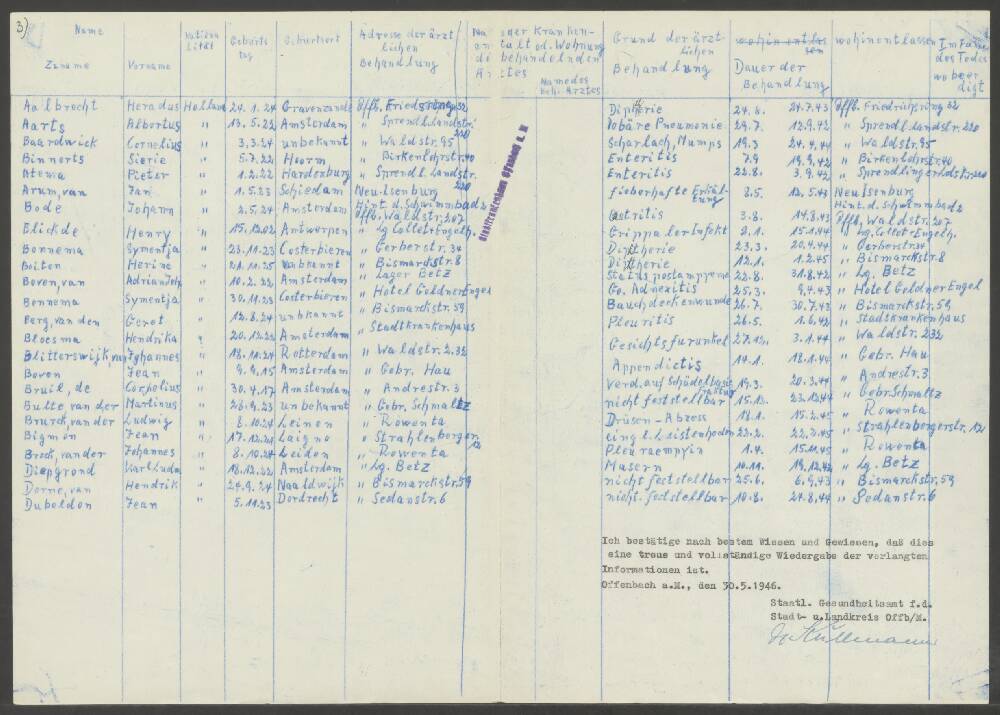 3)
Name Zuname Vorname Nationalität Geburtstag Geburtsort Adresse der ärztlichen Behandlung Na oder Kranken- an talt od. Wohnung d behandelnden Arztes Name des beh. Arztes Grund der ärztlichen Behandlung wohin entlassen Dauer der Behandlung wohin entlassen Im Falle des Todes wo beerdigt
Aalbrecht Heradus Holland 24.1.24 Gravenzande Offb. Friedsring 32 Diptherie 24.6. 24.7.43 Offb. Friedrichsring 32
Aarts Albertus " 13.5.22 Amsterdam " Sprendl. Landstr. 220 lobäre Pneumonie 29.7. 12.9.42 " Sprendl. Landstr. 220
Baardwick Cornelius " 3.3.24 unbekannt " Waldstr. 95 Scharlach, Mumps 19.3 24.4.44 " Waldstr. 95
Binnerts Sierie " 5.7.22 Hoorm " Birkenlohrstr. 40 Enteritis 7.9 19.9.42 " Birkenlohrstr. 40
Atema Pieter " 1.2.22 Hardenburg " Sprendl. Landstr. 220 Enteritis 22.8. 3.9.42 " Sprendlingerldstr. 220
Arum, van Jan " 1.5.23 Schiedam Neu-Isenburg Hint. d. Schwimmbad 2 fieberhafte Erkältung 8.5. 12.5.43 Neu Isenburg Hint. d. Schwimmbad 2
Bode Johann " 2.5.24 Amsterdam Offb. Waldstr. 207 Gastritis 3.8. 14.8.43 Offb. Waldstr. 207
Blickde Henry " 15.12.02 Antwerpen " Lg Collet+Engelh. Grippaler Infekt 2.1. 15.1.44 " Lg. Collet+Engelh.
Bonnema Symentja " 23.11.23 Oosterbieren " Gerberstr. 34 Diptherie 23.3. 20.4.44 " Gerberstr. 34
Boiten Herine " 21.11.25 unbekannt " Bismarckstr. 8 Diptherie 12.1. 1.2.45 " Bismarckstr. 8
Boven, van Adrian Joh. " 10.2.22 Amsterdam " Lager Betz 22.8. 31.8.42 " Lg. Betz
Bonnema Symentja " 30.11.23 Oosterbieren " Hotel Goldner Engel Go. Adnexitis 25.3. 9.4.43 " Hotel Goldner Engel
Berg, van den Geret " 12.8.24 unbekannt " Bismarckstr. 59 Bauchdeckenwunde 26.7. 30.7.43 " Bismarckstr. 59
Bloesma Hendrika " 20.12.22 Amsterdam " Stadtkrankenhaus Pleuritis 26.5. 1.6.42 " Stadtkrankenhaus
Blitterswijk, van Johannes " 18.11.24 Rotterdam " Waldstr. 232 Gesichtsfurunkel 27.12. 3.1.44 " Waldstr. 232
Boven Jean " 9.9.15 Amsterdam " Gebr. Hau Appendictis 14.1. 18.1.44 " Gebr. Hau
Bruil, de Cornelius " 30.4.17 Amsterdam " Andrestr. 3 Verd. auf Schädelbasisfraktur 19.3. 20.3.44 " Andrestr. 3
Bulte van der Martinus " 26.9.23 unbekannt " Gebr. Schmaltz nicht feststellbar 15.12. 23.12.44 " Gebr. Schmaltz
Bruck, van der Ludwig " 8.10.24 Leinen " Rowenta Drüsen-Abzess 18.1. 15.2.45 " Rowenta
Bigmon Jean " 17.12.21 Laigno " Strahlenberger. 12 eingl. Leistenhoden 22.2. 22.2.45 " Strahlenbergerstr. 12
Brock, van der Johannes " 8.10.24 Leiden " Rowenta Pleuraempyin 1.4. 15.11.45 " Rowenta
Diepgrond Karl Ludw. " 18.12.22 Amsterdam " Lg. Betz Masern 10.11. 19.12.42 " Lg. Betz
Dorne, van Hendrik " 24.9.24 Naaldwijk " Bismarckstr. 59 nicht feststellbar 25.6. 6.9.43 " Bismarckstr. 59
Dubeldon Jean " 5.11.23 Dordrecht " Sedanstr. 6 nicht feststellbar 10.8. 24.8.44 " Sedanstr. 6
Stadtkrankenhaus Offenbach a. M
Ich bestätige nach bestem Wissen und Gewissen, daß dies
eine treue und vollständige Wiedergabe der verlangten
Informationen ist.
Offenbach a.M., den 30.5.1946.
Staatl. Gesundheitsamt f.d.
Stadt- u.Landkreis Offb/M.